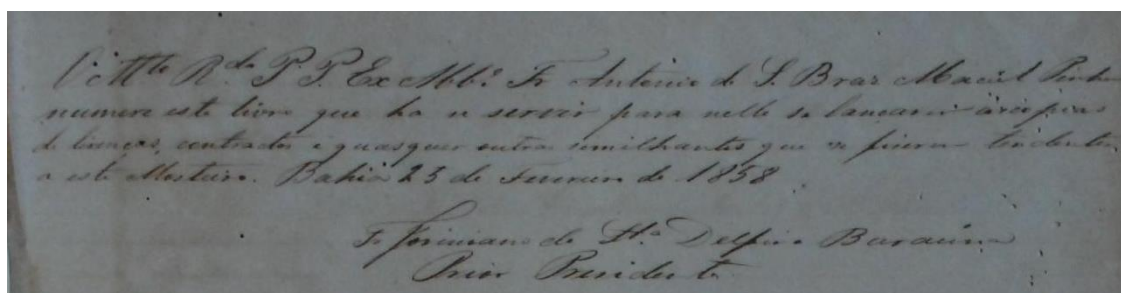 O M.to R.do P. P. Ex Abb.e Fr Antonio de S. Braz Maciel Pinheiro
numere este livro que ha de servir para nelle se lançarem as copias
de licenças, contractos e quasquer outros similhantes que se fizerem tendentes
a este Mosteiro. Bahia 25 de Fevereiro de 1858
Fr de Sta Delfina Baraúna
Prior Presidente